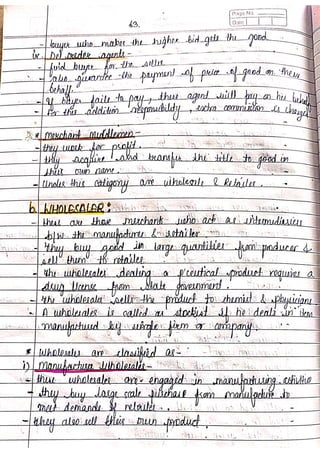 Page No.
Date
43.
- buyer who makes the higher bid gets the good
iv. Del creder agents -
- find buyer for the seller
- also guarantee the payment of price of good on their
behalf.
- If buyer fails to pay, these agent will pay on his behalf
- For this addition responsibility, extra commission is charged
* merchant middlemen -
- they work for profit.
- they acquire and transfer the title to good in
their own name.
- Under this category are wholesale & Retailer.
b. WHOLESALER :
- these are those merchant who act as intermediaries
b/w the manufacturer & retailer
- They buy good in large quantities from producer &
sell them to retailer
- the wholesaler dealing a p'ceutical product requires a
drug license from state government.
- the wholesale sells the product to chemist & physicians
- A wholesaler is called as stockist if he deals in item
manufactured by single firm or company.
* Wholesaler are classified as -
i) manufacturer wholesaler -
- these wholesaler are engaged in manufacturing activities
- they buy large scale purchase from manufacture to
meet demands of retailer.
- they also sell their own product.